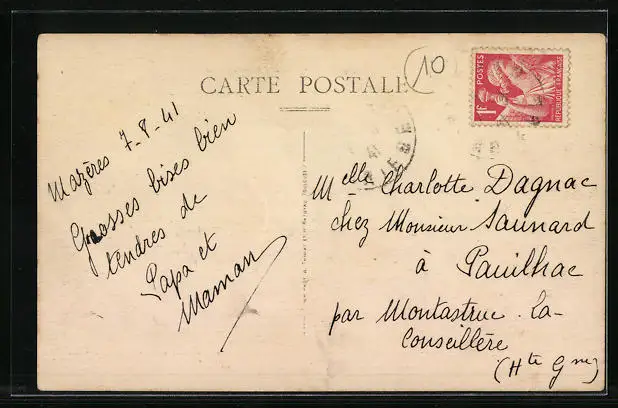 CARTE POSTALE
10
POSTES
1F
REPUBLIQUE FRANÇAISE
Mazères 7-8-41
Grosses bises bien
tendres de
Papa et
Maman
41
Melle Charlotte Dagnac
chez Monsieur Saunard
à Pauilhac
par Montastruc-la-
Conseillère
(Hte Gne)